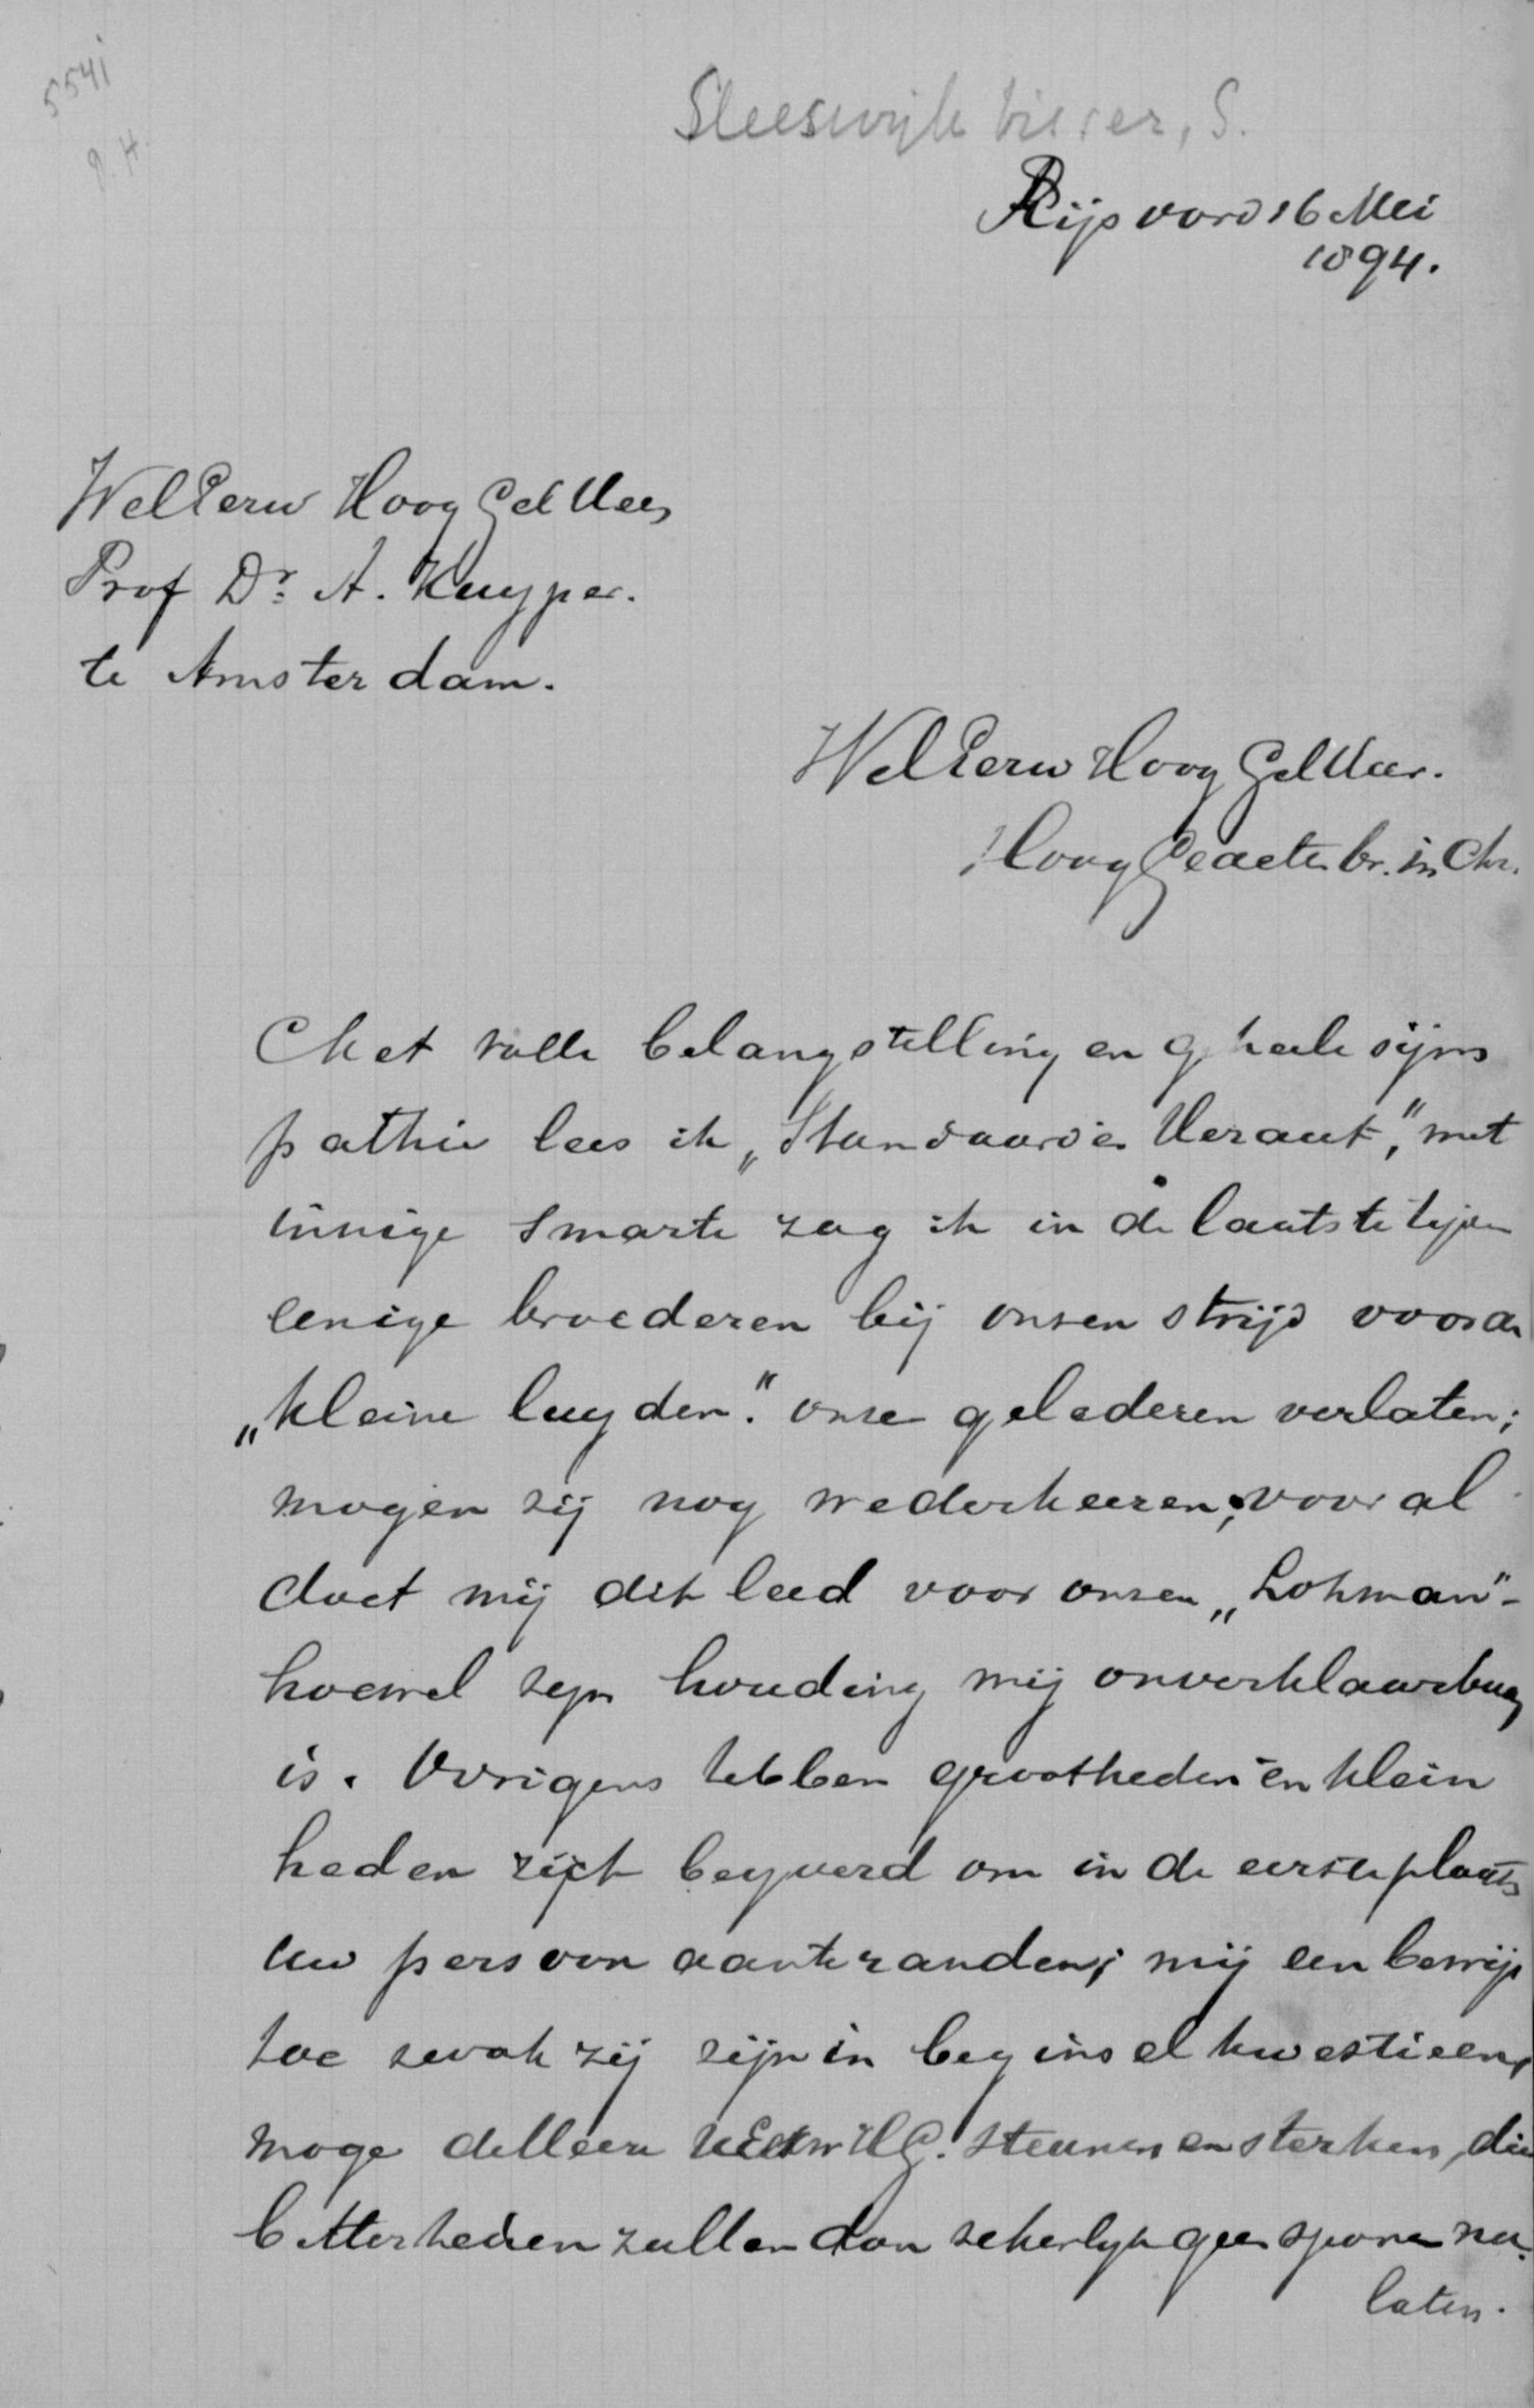 5541
Sleeswijk Visser, S.
Rijsoord 16 Mei
1894.
WelEerw Hoog Gel Heer
Prof Dr. A. Kuyper.
te Amsterdam.
WelEerw Hoog Gel Heer.
Hoog Geachte br. in Chr.
Met volle belangstelling en geheele sijm
pathie lees ik „Standaard en Heraut,” met
innige smarte zag ik in de laatste tijden
eenige broederen bij onsen strijd voor de
„kleine luyden.” onse gelederen verlaten;
mogen sij nog wederkeeren; vooral
doet mij dit leed voor onsen „Lohman”-
hoewel sijn houding mij onverklaarbaar
is. Overigens hebben grootheden en klein
heden zich beyverd om in de eerste plaats
uw persoon aanteranden; mij een bewijs
hoe swak zij zijn in beginsel kwestieen,
moge de Heere HG. steunen en sterken, die
bitterheden zullen dan sekerlyk geen sporen na
laten.